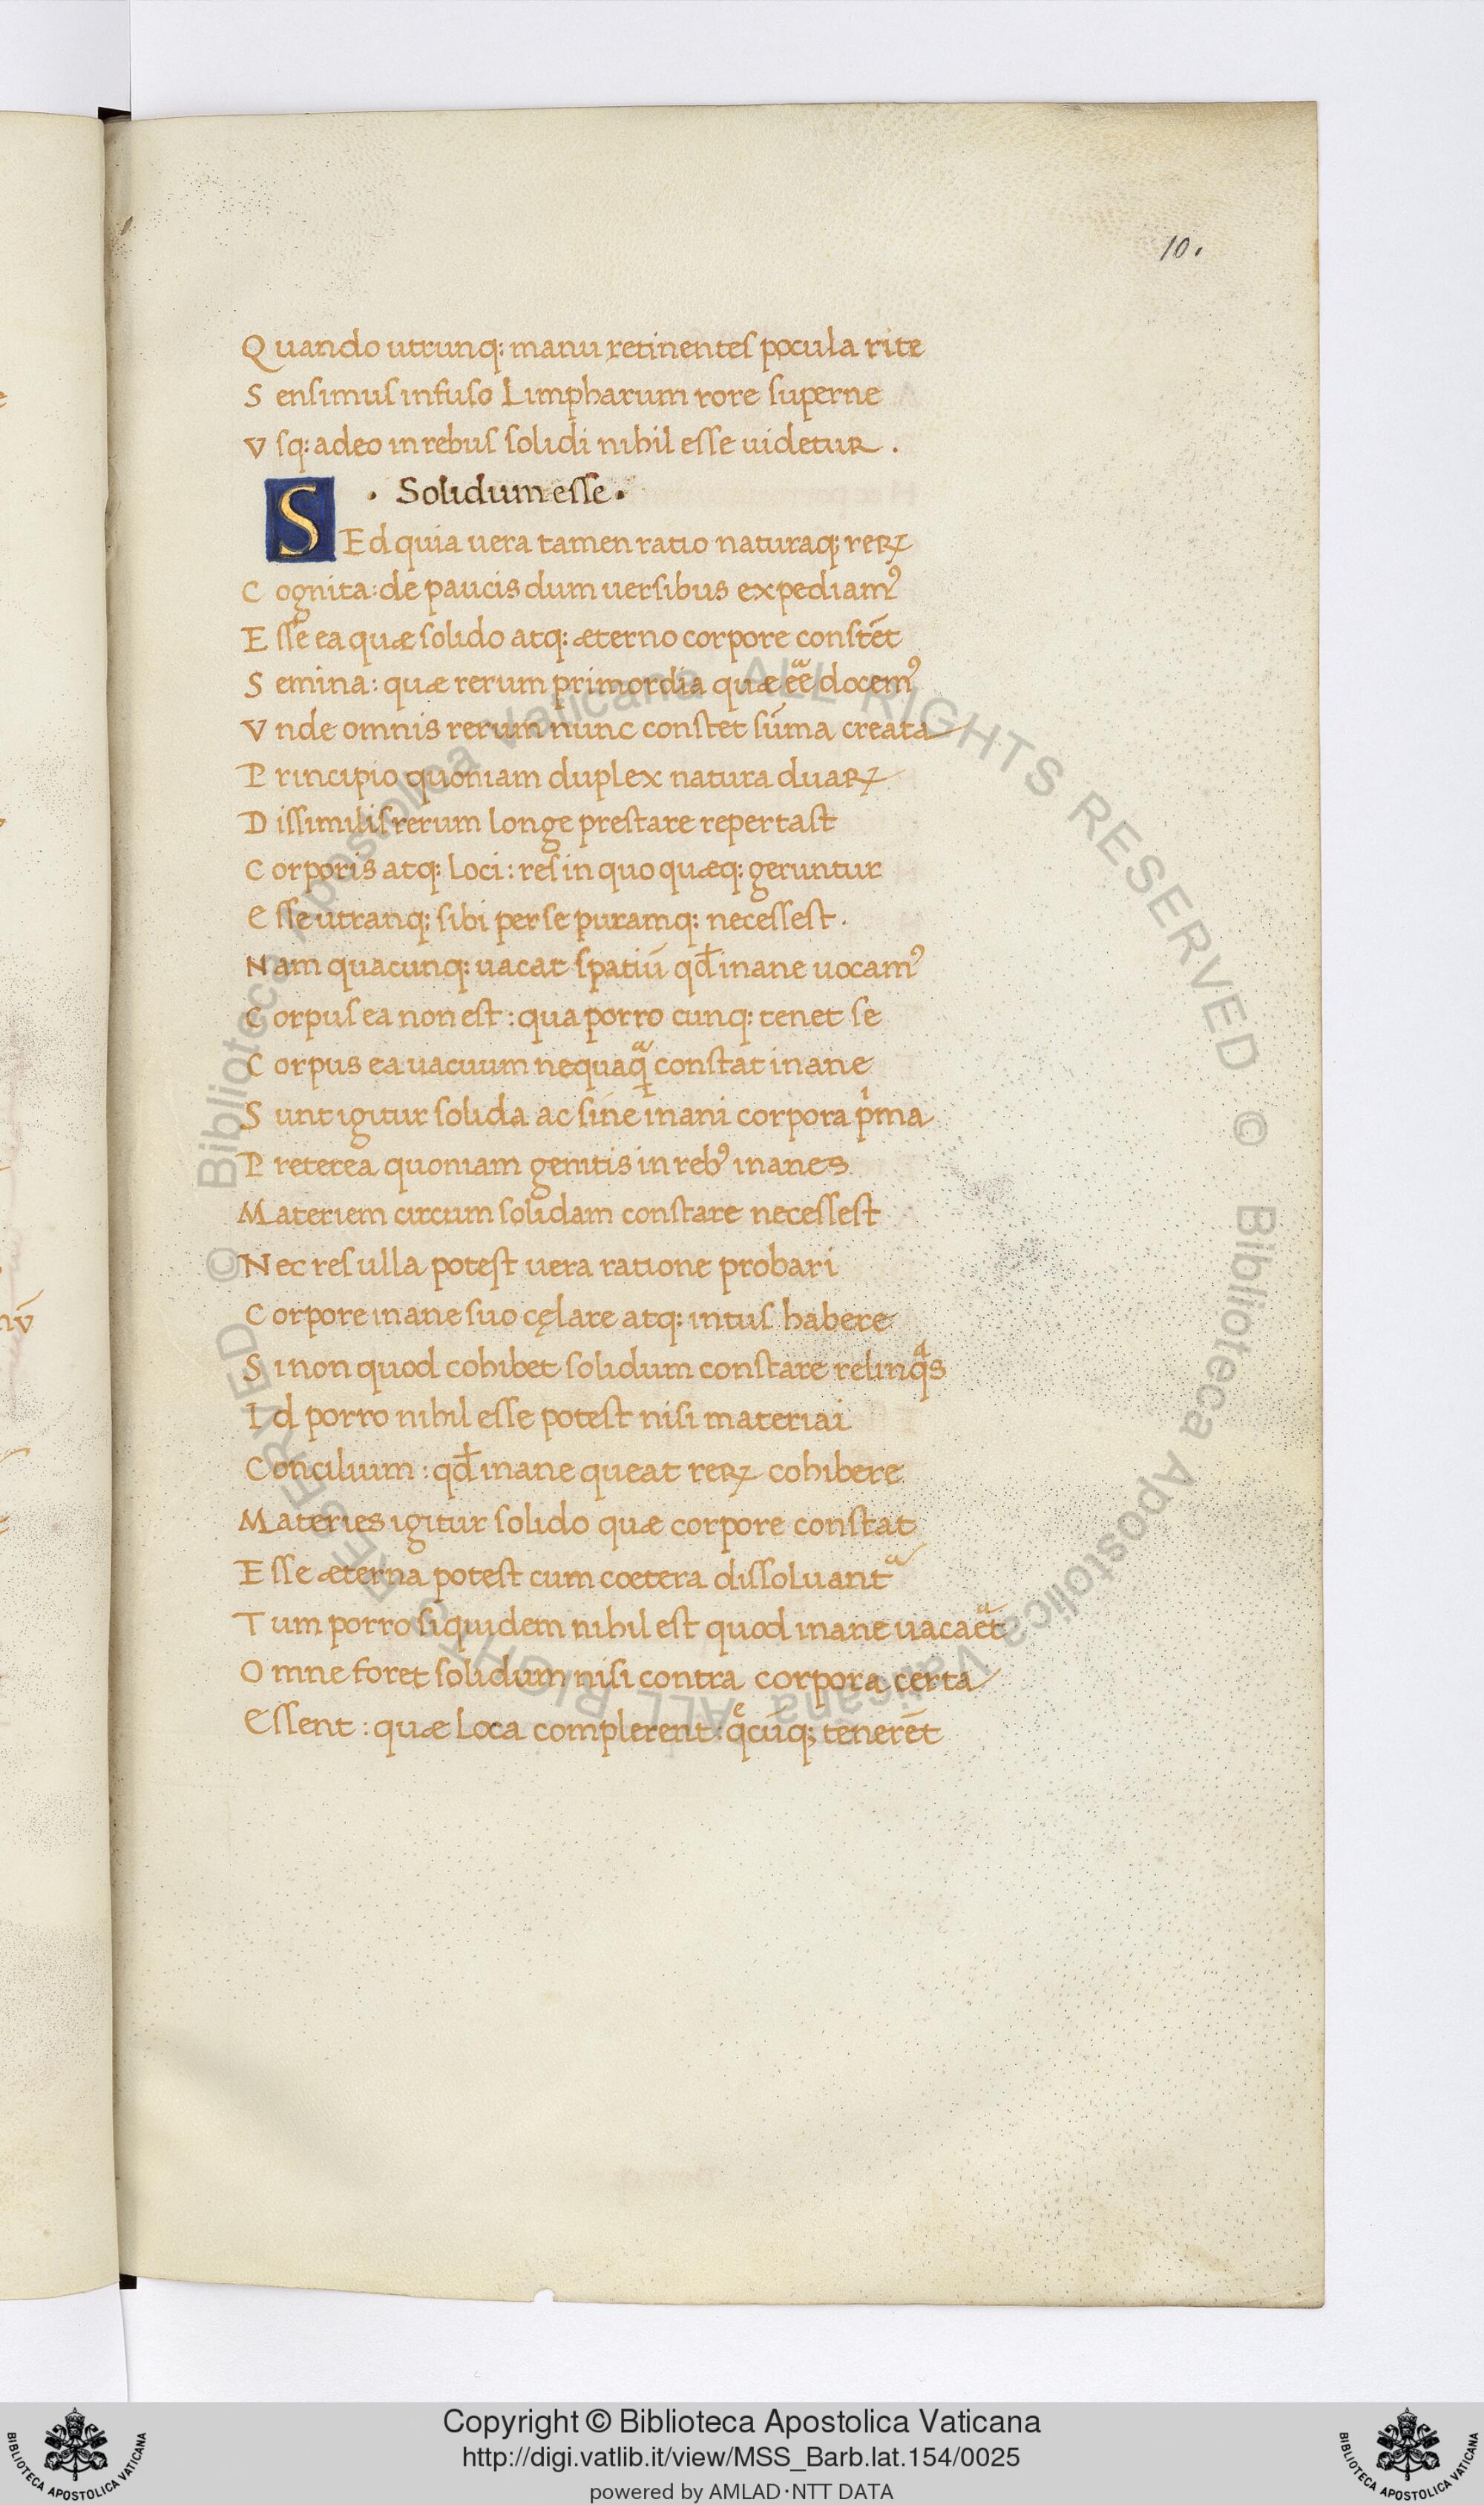 10.
Quando utrunq: manu retinentes pocula rite
Sensimus infuso Limpharum rore superne
Vsq: adeo in rebus solidi nihil esse uidetur.
· Solidum esse ·
SEd quia uera tamen ratio naturaq; reꝝ
Cognita: de paucis dum uersibus expediamꝰ
Esse ea quæ solido atq: æterno corpore constēt
Semina: quæ rerum primordia quæ eē docemꝰ
Vnde omnis rerum nunc constet sūma creata
Principio quoniam duplex natura duaꝝ
Dissimilis rerum longe prestare repertast
Corporis atq: loci: res in quo quæq: geruntur
Esse utranq; sibi per se puramq: necessest.
Nam quacunq: uacat spatiū qd̄ inane uocamꝰ
Corpus ea non est: qua porro cunq: tenet se
Corpus ea uacuum nequaq̄ constat inane
Sunt igitur solida ac sine inani corpora pͥma
Preterea quoniam genitis in rebꝰ inanes
Materiem circum solidam constare necessest
Nec res ulla potest uera ratione probari
Corpore inane suo cęlare atq: intus habere
Si non quod cohibet solidum constare relinqͣs
Id porro nihil esse potest nisi materiai
Concilium: qd̄ inane queat reꝝ cohibere
Materies igitur solido quæ corpore constat
Esse æterna potest cum cœtera dissoluant᷑
Tum porro siquidem nihil est quod inane uacaēt
Omne foret solidum nisi contra corpora certa
Essent: quæ loca complerent: qͤcūq; tenerēt
© Biblioteca Apostolica Vaticana ALL RIGHTS RESERVED © Biblioteca Apostolica Vaticana ALL RIGHTS RESERVED
Copyright © Biblioteca Apostolica Vaticana
http://digi.vatlib.it/view/MSS_Barb.lat.154/0025
powered by AMLAD·NTT DATA
BIBLIOTECA APOSTOLICA VATICANA
BIBLIOTECA APOSTOLICA VATICANA